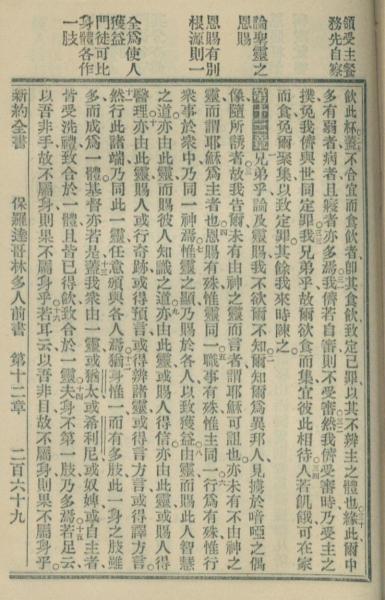 領受主餐
務先自察
論聖靈之
恩賜
恩賜有別
根源則一
全爲使人
獲益
門徒可比
身體各作
一肢
飲此杯蓋不合宜而食飲者卽其食飲致定已罪以其不辨主之體也緣此爾中
多有弱者病者且寢者亦多焉我儕若自審則不受審然我儕受審時乃受主之
撲免我儕與世同定罪我兄弟乎故爾欲食而集宜彼此相待人若飢餓可在家
而食免爾聚集以致定罪其餘我來時陳之
第十二章兄弟乎論及靈賜我不欲爾不知爾知爾爲異邦人見擄於喑啞之偶
像隨所誘者故我告爾未有由神之靈而言者謂耶穌可詛也亦未有不由神之
靈而謂耶穌爲主者也恩賜有殊惟靈同一職事有殊惟主同一行爲有殊惟行
衆事於衆中乃同一神焉惟靈之顯乃賜於各人以致獲益由靈而賜此人智慧
之道亦由此靈而賜彼人知識之道亦由此靈或賜人得信亦由此靈或賜人得
醫理亦由此靈賜人或行奇跡或得預言或得辨諸靈或得言方言或得譯方言
然行此諸端乃同此一靈任意頒與各人焉猶身惟一而有多肢此一身之肢雖
多而成爲一體基督亦若是蓋我衆由一靈或猶太或希利尼或奴婢或自主者
皆受洗禮致合於一體且皆已得飲致合於一靈夫身不第一肢乃多焉若足云
以吾非手故不屬身則果不屬身乎若耳云以吾非目故不屬身則果不屬身乎
新約全書　保羅達哥林多人前書　第十二章　二百六十九